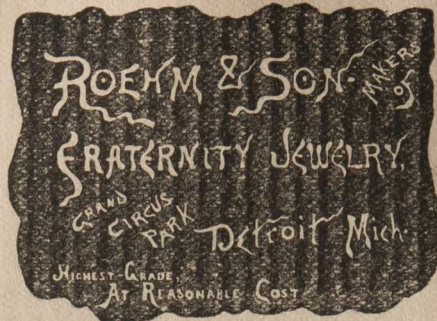 ROEHM & SON-
MAKERS
OF
FRATERNITY JEWELRY,
GRAND
CIRCUS
PARK
Detroit Mich.
HIGHEST-GRADE,
AT REASONABLE COST